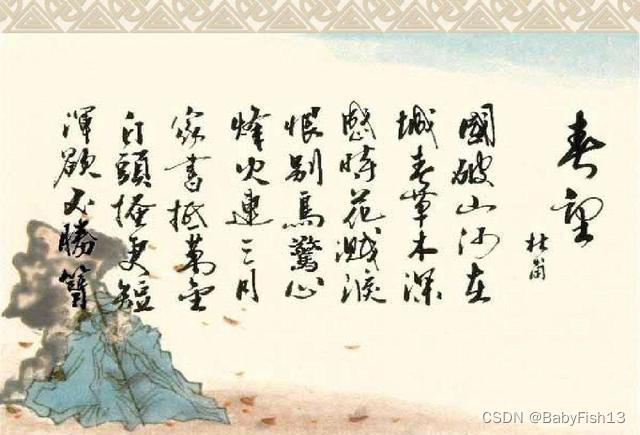 春望
杜甫
國破山河在
城春草木深
感時花濺淚
恨别鳥驚心
烽火連三月
家書抵萬金
白頭搔更短
渾欲不勝簪
CSDN @BabyFish13